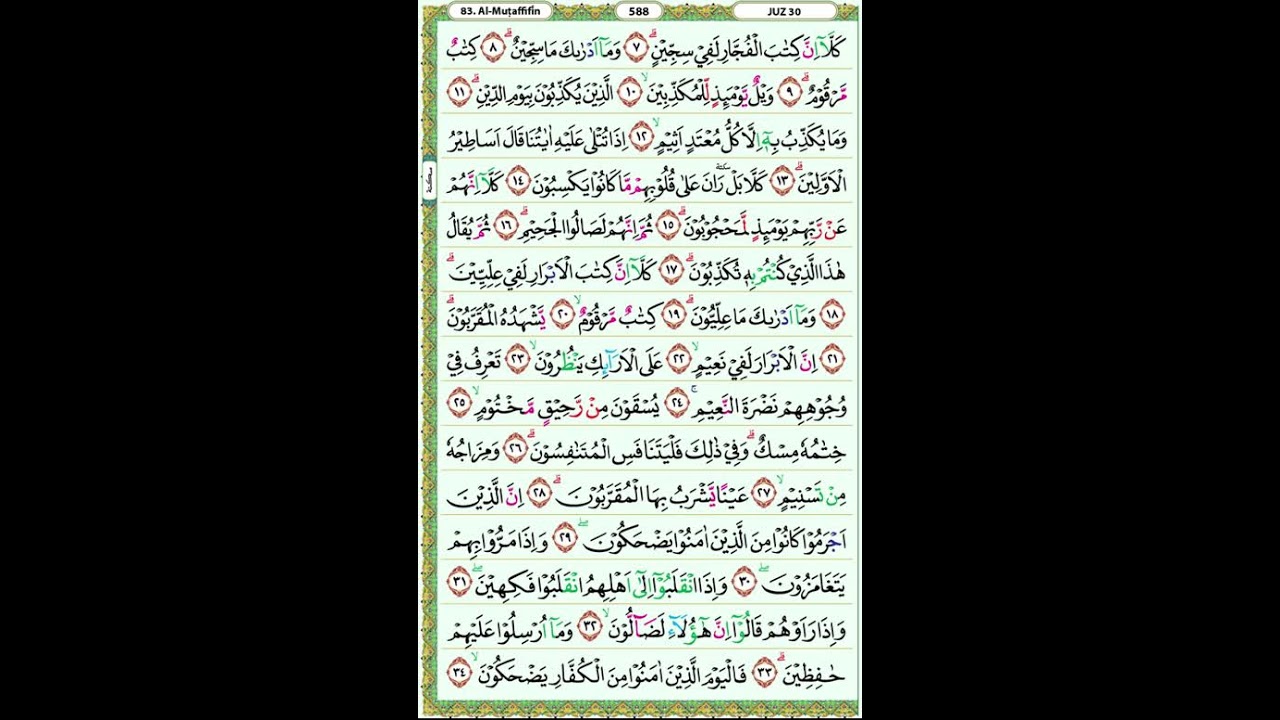 83. Al-Muṭaffifīn 588 JUZ 30
كَلَّآ اِنَّ كِتٰبَ الْفُجَّارِ لَفِيْ سِجِّيْنٍۗ ٧ وَمَآ اَدْرٰىكَ مَا سِجِّيْنٌۗ ٨ كِتٰبٌ
مَّرْقُوْمٌۗ ٩ وَيْلٌ يَّوْمَىِٕذٍ لِّلْمُكَذِّبِيْنَۙ ١٠ الَّذِيْنَ يُكَذِّبُوْنَ بِيَوْمِ الدِّيْنِۗ ١١
وَمَا يُكَذِّبُ بِهٖٓ اِلَّا كُلُّ مُعْتَدٍ اَثِيْمٍۙ ١٢ اِذَا تُتْلٰى عَلَيْهِ اٰيٰتُنَا قَالَ اَسَاطِيْرُ
الْاَوَّلِيْنَۗ ١٣ كَلَّا بَلْ ۜ رَانَ عَلٰى قُلُوْبِهِمْ مَّا كَانُوْا يَكْسِبُوْنَ ١٤ كَلَّآ اِنَّهُمْ
سكتة
عَنْ رَّبِّهِمْ يَوْمَىِٕذٍ لَّمَحْجُوْبُوْنَۗ ١٥ ثُمَّ اِنَّهُمْ لَصَالُوا الْجَحِيْمِۗ ١٦ ثُمَّ يُقَالُ
هٰذَا الَّذِيْ كُنْتُمْ بِهٖ تُكَذِّبُوْنَۗ ١٧ كَلَّآ اِنَّ كِتٰبَ الْاَبْرَارِ لَفِيْ عِلِّيِّيْنَۗ
١٨ وَمَآ اَدْرٰىكَ مَا عِلِّيُّوْنَۗ ١٩ كِتٰبٌ مَّرْقُوْمٌۙ ٢٠ يَّشْهَدُهُ الْمُقَرَّبُوْنَۗ
٢١ اِنَّ الْاَبْرَارَ لَفِيْ نَعِيْمٍۙ ٢٢ عَلَى الْاَرَاۤىِٕكِ يَنْظُرُوْنَۙ ٢٣ تَعْرِفُ فِيْ
وُجُوْهِهِمْ نَضْرَةَ النَّعِيْمِۚ ٢٤ يُسْقَوْنَ مِنْ رَّحِيْقٍ مَّخْتُوْمٍۙ ٢٥
خِتٰمُهٗ مِسْكٌۗ وَفِيْ ذٰلِكَ فَلْيَتَنَافَسِ الْمُتَنٰفِسُوْنَۗ ٢٦ وَمِزَاجُهٗ
مِنْ تَسْنِيْمٍۙ ٢٧ عَيْنًا يَّشْرَبُ بِهَا الْمُقَرَّبُوْنَۗ ٢٨ اِنَّ الَّذِيْنَ
اَجْرَمُوْا كَانُوْا مِنَ الَّذِيْنَ اٰمَنُوْا يَضْحَكُوْنَۖ ٢٩ وَاِذَا مَرُّوْا بِهِمْ
يَتَغَامَزُوْنَۖ ٣٠ وَاِذَا انْقَلَبُوْٓا اِلٰٓى اَهْلِهِمُ انْقَلَبُوْا فَكِهِيْنَۖ ٣١
وَاِذَا رَاَوْهُمْ قَالُوْٓا اِنَّ هٰٓؤُلَاۤءِ لَضَاۤلُّوْنَۙ ٣٢ وَمَآ اُرْسِلُوْا عَلَيْهِمْ
حٰفِظِيْنَۗ ٣٣ فَالْيَوْمَ الَّذِيْنَ اٰمَنُوْا مِنَ الْكُفَّارِ يَضْحَكُوْنَۙ ٣٤